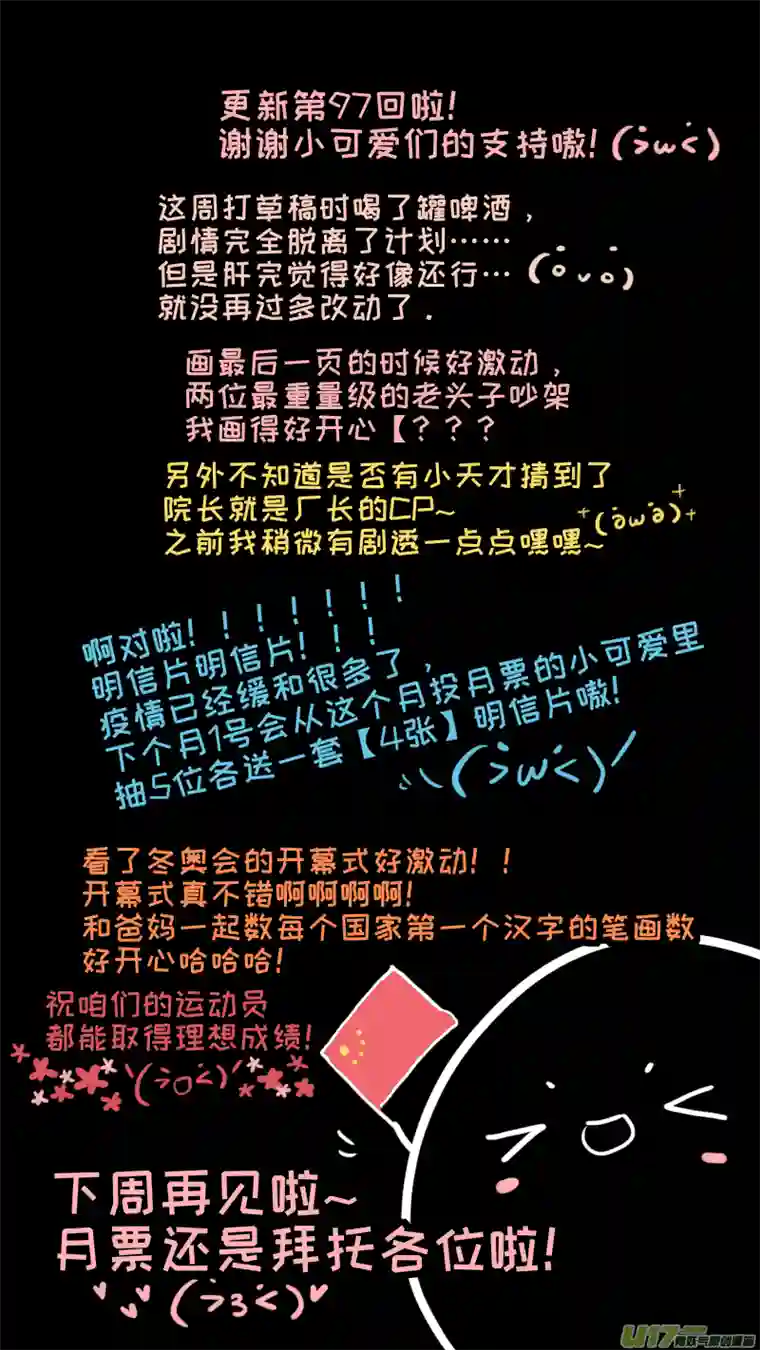 更新第97回啦!
谢谢小可爱们的支持嗷! (>ω<)
这周打草稿时喝了罐啤酒，
剧情完全脱离了计划……
但是肝完觉得好像还行…
就没再过多改动了．
画最后一页的时候好激动，
两位最重量级的老头子吵架
我画得好开心【？？？
另外不知道是否有小天才猜到了
院长就是厂长的CP~
之前我稍微有剧透一点点嘿嘿~
啊对啦！！！！！！！
明信片明信片！！！
疫情已经缓和很多了，
下个月1号会从这个月投月票的小可爱里
抽5位各送一套【4张】明信片嗷!
(>ω<)
看了冬奥会的开幕式好激动！！
开幕式真不错啊啊啊啊!
和爸妈一起数每个国家第一个汉字的笔画数
好开心哈哈哈!
祝咱们的运动员
都能取得理想成绩!
(>o<)
下周再见啦~
月票还是拜托各位啦!
(>3<)
U17